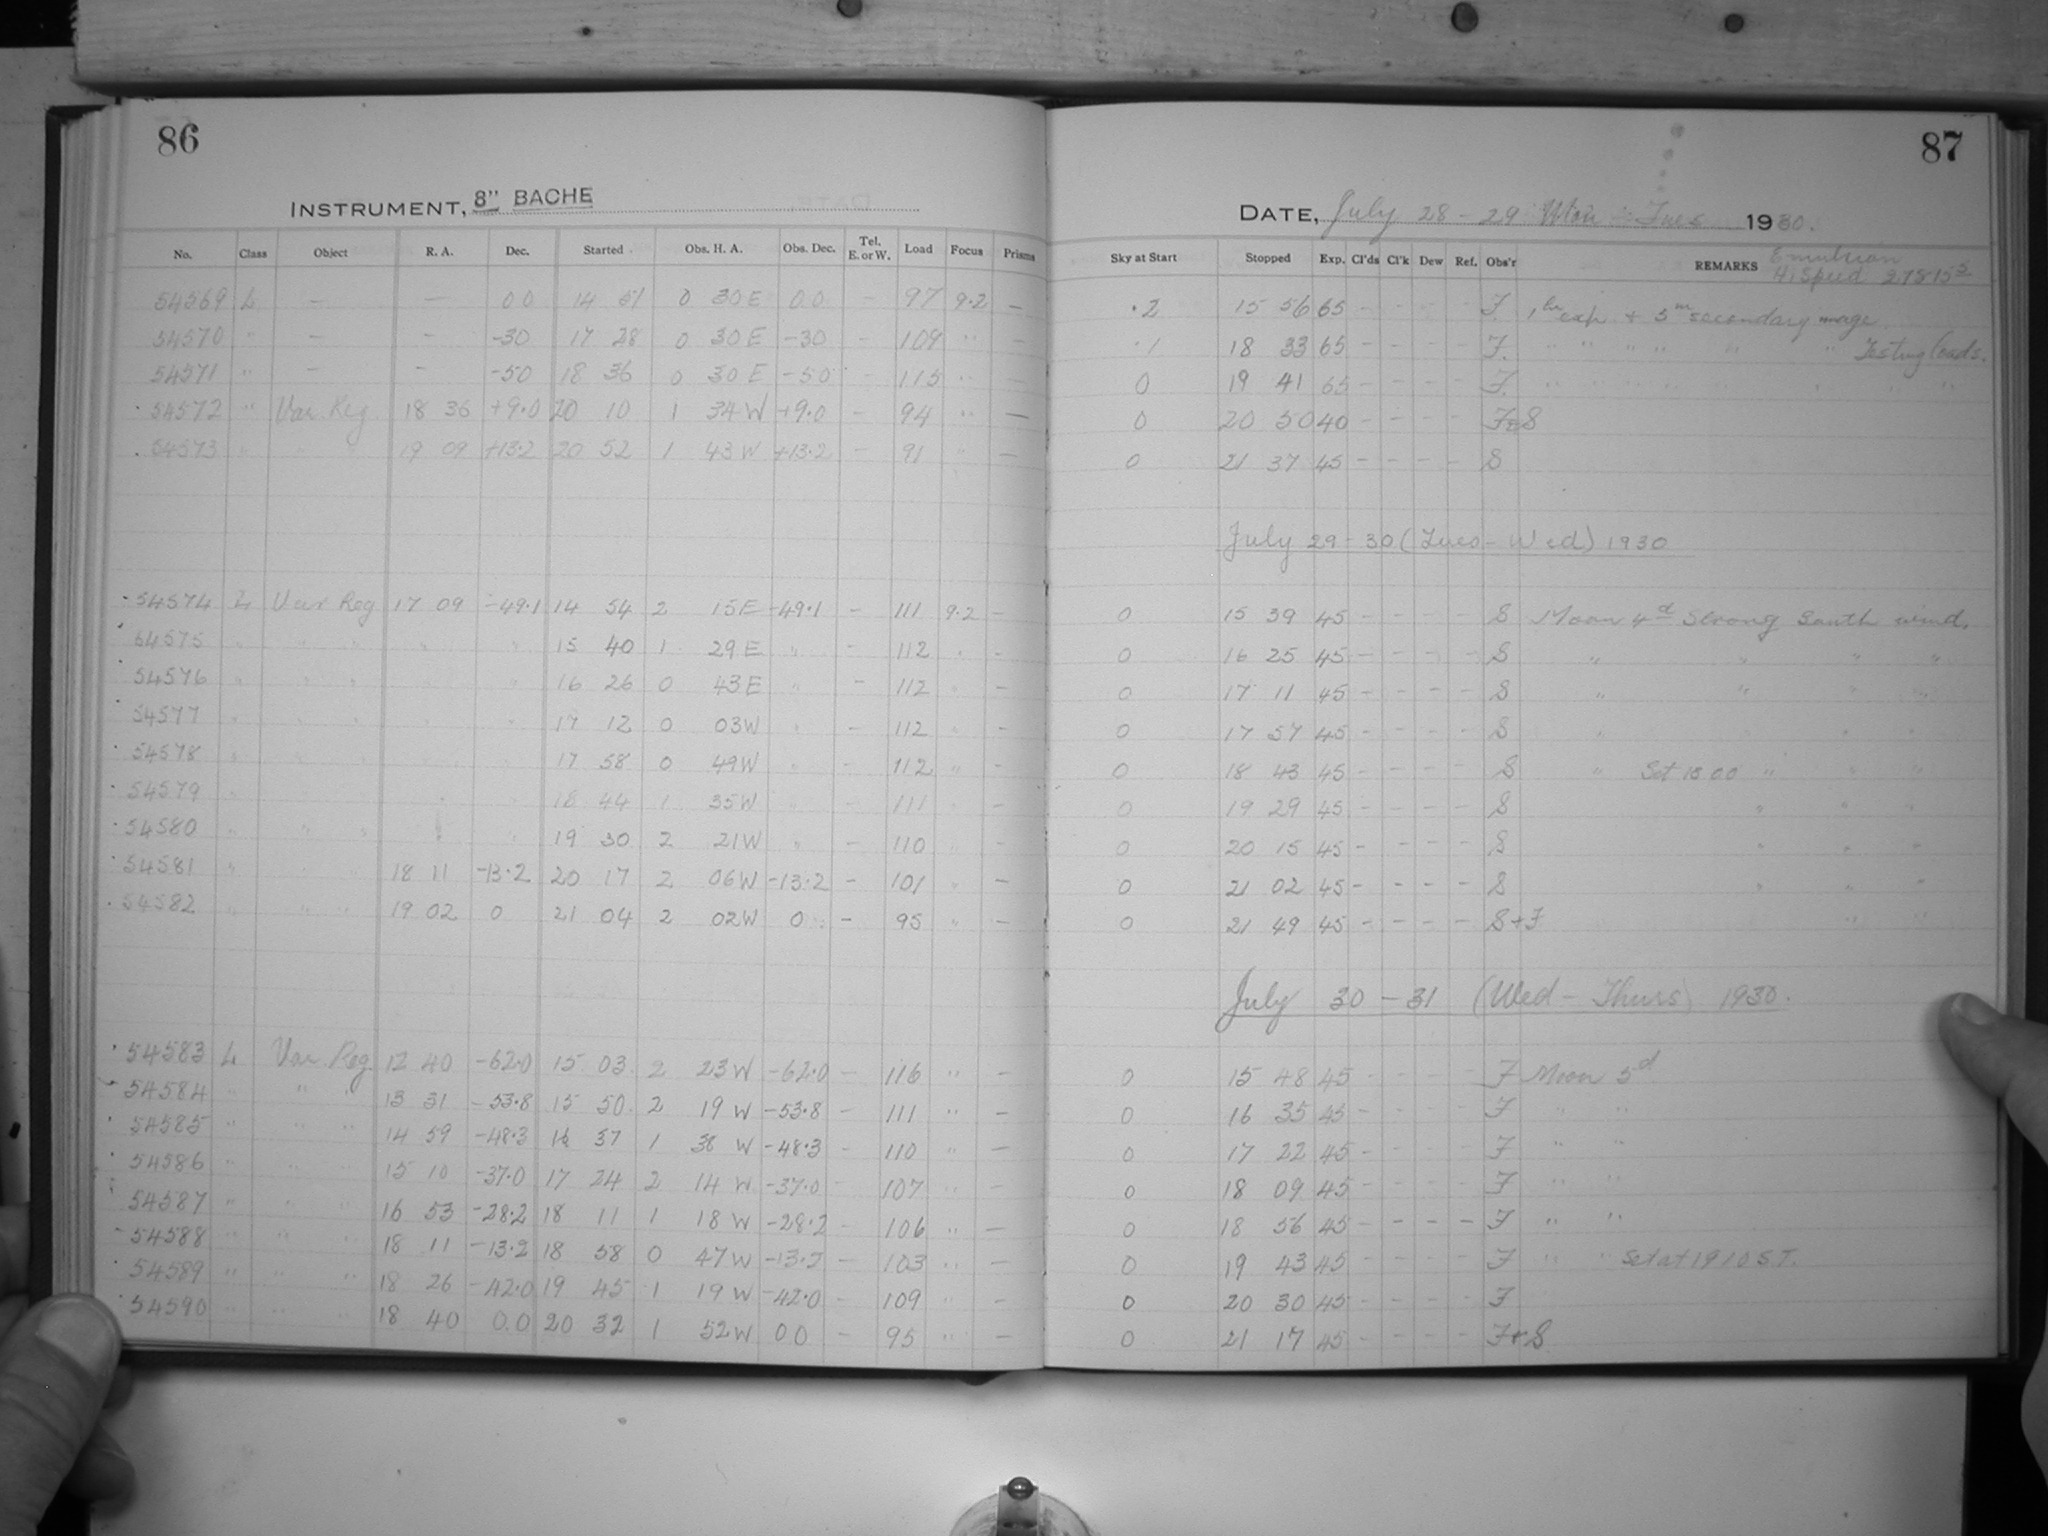 86
INSTRUMENT, 8" BACHE
No. Class Object R. A. Dec. Started Obs. H. A. Obs. Dec. Tel. E. or W. Load Focus Prisms
54569 L — — 00 14 51 0 30E 00 - 97 9.2 —
54570 " — - -30 17 28 0 30E -30 - 109 " —
54571 " — - -50 18 36 0 30E -50 - 115 " —
54572 " Var. Reg 18 36 +9.0 20 10 1 34W +9.0 - 94 " —
54573 " " " 19 09 +13.2 20 52 1 43W +13.2 - 91 " —
54574 L Var Reg 17 09 -49.1 14 54 2 15E -49.1 - 111 9.2 -
54575 " " " " " 15 40 1 29E " - 112 " -
54576 " " " " " 16 26 0 43E " - 112 " -
54577 " " " " " 17 12 0 03W " - 112 " -
54578 " " " " " 17 58 0 49W " - 112 " -
54579 " " " " " 18 44 1 35W " - 111 " -
54580 " " " " " 19 30 2 21W " - 110 " -
54581 " " " 18 11 -13.2 20 17 2 06W -13.2 - 101 " -
54582 " " " 19 02 0 21 04 2 02W 0 - 95 " -
54583 L Var. Reg. 12 40 -62.0 15 03 2 23W -62.0 - 116 " -
54584 " " 13 31 -53.8 15 50 2 19W -53.8 - 111 " -
54585 " " " 14 59 -48.3 16 37 1 38W -48.3 - 110 " -
54586 " " " 15 10 -37.0 17 24 2 14W -37.0 - 107 " -
54587 " " " 16 53 -28.2 18 11 1 18W -28.2 - 106 " -
54588 " " " 18 11 -13.2 18 58 0 47W -13.2 - 103 " -
54589 " " " 18 26 -42.0 19 45 1 19W -42.0 - 109 " -
54590 " " " 18 40 0.0 20 32 1 52W 00 - 95 " -
87
DATE, July 28-29 Mon - Tues 1930.
Sky at Start Stopped Exp. Cl'ds Cl'k Dew Ref. Obs'r REMARKS Emulsion
Hi Speed 27815
.2 15 56 65 - - - - F. 1 hr exp + 5 m secondary image
.1 18 33 65 - - - - F. " " " " " " Testing loads.
0 19 41 65 - - - - F. " " " " " " "
0 20 50 40 - - - - F+S
0 21 37 45 - - - - S
July 29-30 (Tues-Wed) 1930
0 15 39 45 - - - - S Moon 4d Strong South wind.
0 16 25 45 - - - - S " " " "
0 17 11 45 - - - - S " " " "
0 17 57 45 - - - - S " " " "
0 18 43 45 - - - - S " Set 18 00 " " "
0 19 29 45 - - - - S " " "
0 20 15 45 - - - - S " " "
0 21 02 45 - - - - S " " "
0 21 49 45 - - - - S+F " "
July 30-31 (Wed-Thurs) 1930.
0 15 48 45 - - - - F Moon 5d
0 16 35 45 - - - - F " "
0 17 22 45 - - - - F " "
0 18 09 45 - - - - F " "
0 18 56 45 - - - - F " "
0 19 43 45 - - - - F " " Set at 19 10 S.T.
0 20 30 45 - - - - F
0 21 17 45 - - - - F+S